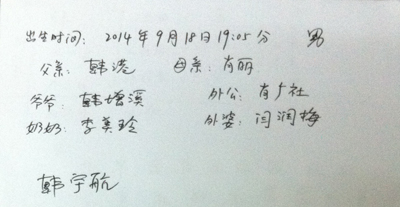 出生时间: 2014年9月18日19:05分 男
父亲: 韩港 母亲: 肖丽
爷爷: 韩增溪 外公: 肖广社
奶奶: 李美玲 外婆: 闫润梅
韩宇航